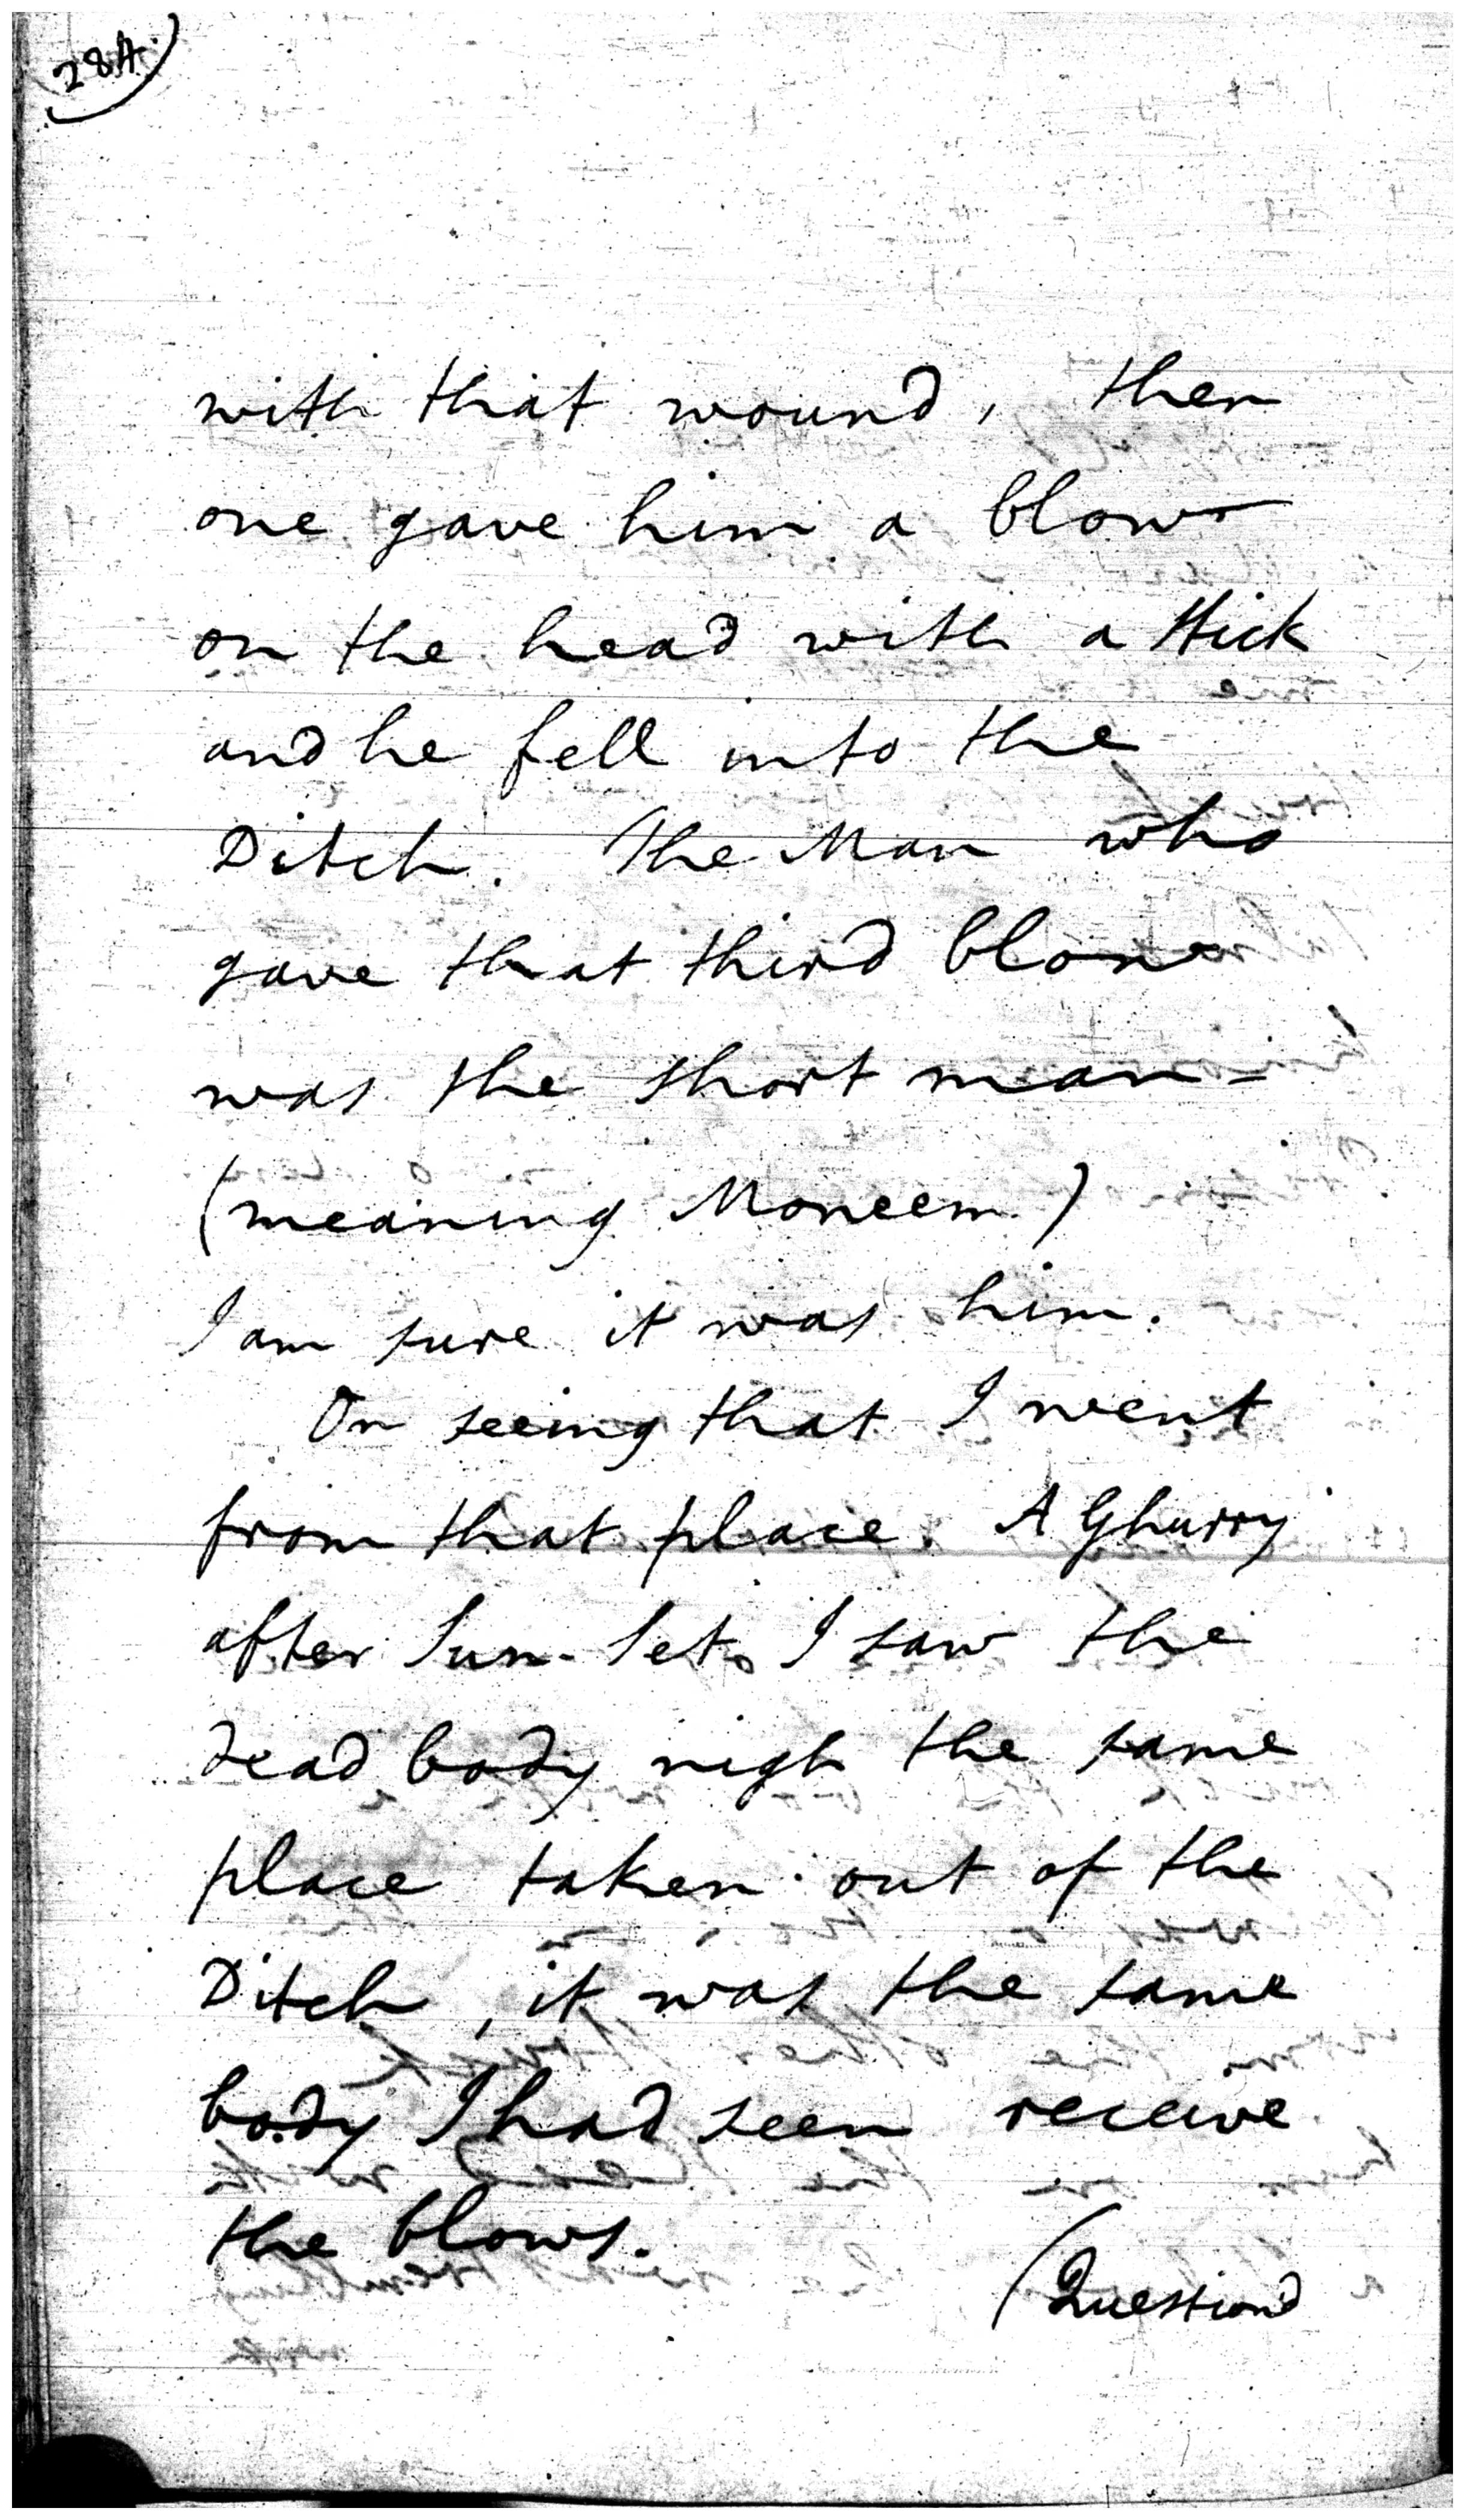 28A
with that wound, then
one gave him a blow
on the head with a stick
and he fell into the
Ditch. The Man who
gave that third blow
was the short man -
(meaning Moneem)
I am sure it was him.
On seeing that I went
from that place. A Ghurry
after Sun-Set. I saw the
dead body nigh the same
place taken out of the
Ditch, it was the same
body I had seen receive
the blows.
(Question'd